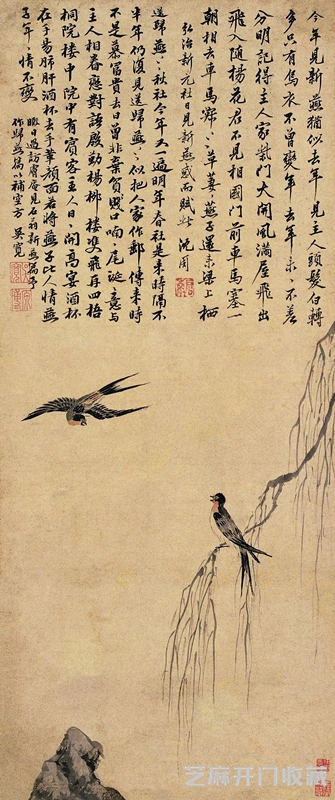 今年見新燕猶似去年見主人頭髮白轉
多只有烏衣不曾變年去年来不差
分明記得主人家柴門大開風滿屋飛出
飛入隨楊花君不見相國門前車馬塞一
朝相去車馬踈〻草萋〻燕子還来梁上栖
弘治新元社日見新燕感而賦此 沈周
送歸燕〻秋社今年又過明年春社是来時隔不
半年仍復見送歸燕〻似把人家作郵傳来時
不是慕富貴去日曾非棄貧賤口喃〻尾涎〻意与
主人相眷戀對語殷勤楊柳樓雙飛再四梧
桐院樓中院中有賓客主人日〻開高宴酒杯
在手易肺肝酒杯去手華顏面若將燕子比人情燕
子年〻情不變
昨日過訪菴見石翁新燕篇予
作歸燕篇以補空方 吳寬
芝麻开门收藏